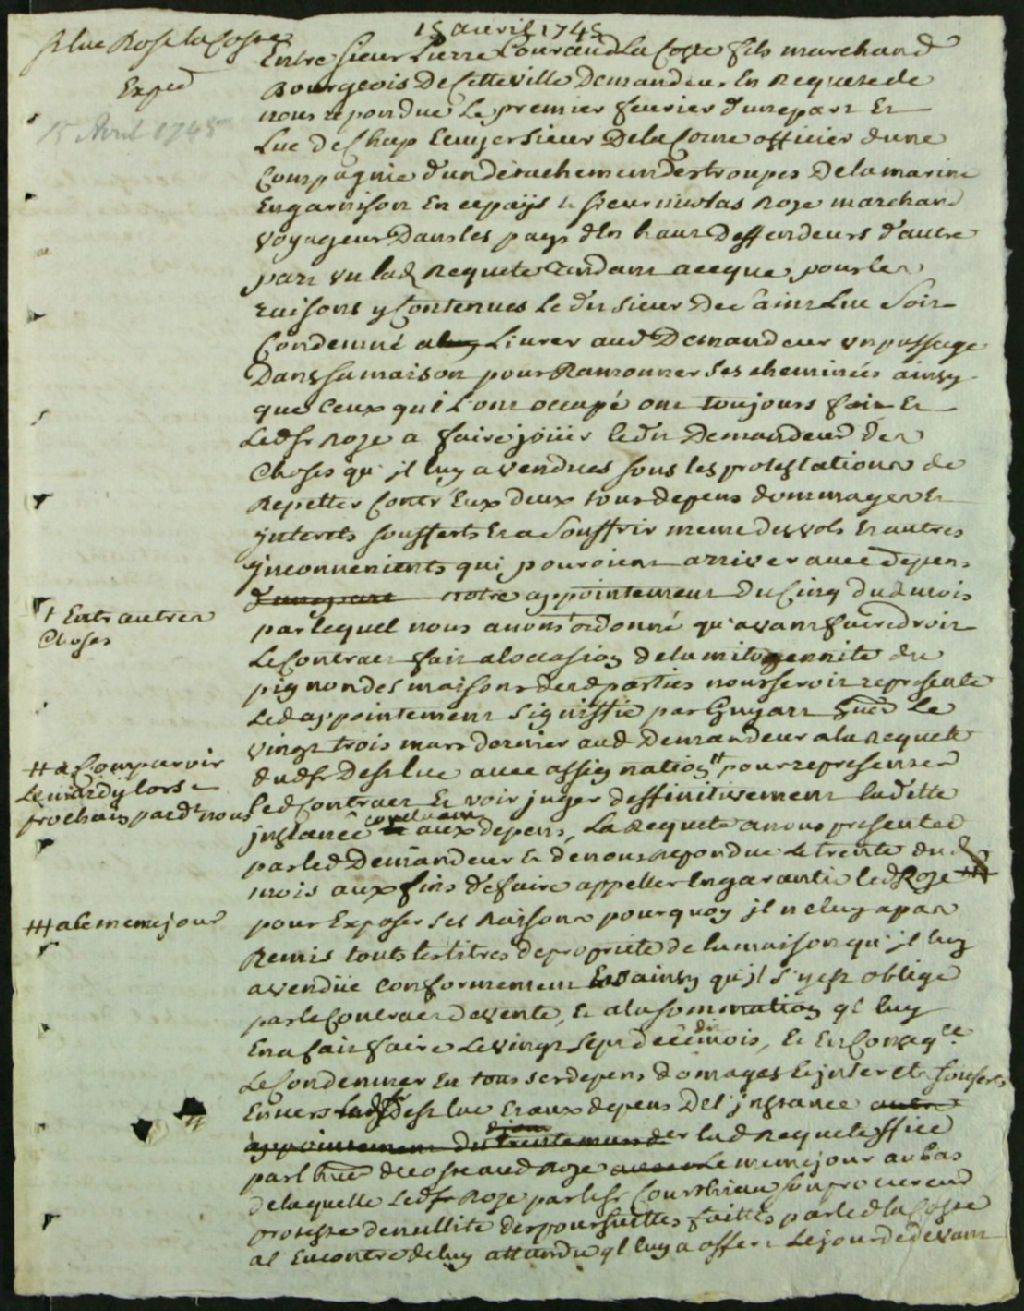 15 avril 1745
St luc Rose la Coste
Exped
15 Avril 1745
Entre Sieur Pierre Couraud La Coste fils marchand
Bourgeois De Cette ville Demandeur En Requete de
nous repondue Le premier fevrier d'une part Et
Luc De Chap Ecuyer Sieur De la Corne officier dune
Compagnie d'un detachement des troupes De la marine
En garnison En ce païs & Sieur nicolas Roze marchand
voyageur Dans les pays d'En haut Deffendeurs d'autre
part vu lad Requete Tendant a ce que pour les
raisons y Contenues Le dit Sieur De Saint Luc Soit
Condemné a Livrer aud Demandeur un passage
Dans sa maison pour Ramonner Ses cheminées ainsy
que Ceux qui L'ont occupé ont toujours fait Et
Led Sr Roze a faire joüir ledit Demandeur des
Choses qu'jl luy a vendues sous les protestations de
Repetter Contr'Eux deux tous depens dommages Et
jnterets soufferts Et a Souffrir meme des vols Et autres
jnconvenients qui pouroient arriver avec depens
d'une part notre appointement Du Cinq dud mois
† Entr autres
Choses
par lequel nous avons ordonné qu'avant faire droit
Le Contract fait a l'occasion de la mitoyennité du
pignon des maisons desd parties nous seroit représenté
Led appointement Signiffié par Guyart Le
vingt trois mars dernier aud Demandeur a la Requete
dud Sr De St luc avec assignation # pour representer
# a Comparoir
Le mardy lors
prochain pardt nous
led Contract Et voir juger deffinitivement laditte
jnstance aux depens, La Requete a nous presentée
par led Demandeur Et de nous repondue Le trente dud
mois aux fins de faire appeller En garantie led Roze #
# a le meme jour
pour Exposer Ses Raisons pourquoy jl ne luy a pas
Remis touts les titres de propriété de la maison qu'jl luy
a vendüe conformement ainsy qu'jl s'y est obligé
par le Contract de vente, Et a la sommation ql luy
En a fait faire Le vingt Sept dud mois, Et En Conseqce
Le Condemner En tous Ses depens domages Et jnterets Soufferts
Envers De St luc Et aux depens De l'jnstance
appointement Du trente mars lad Requete
par De Coste aud Roze Le meme jour au bas
de laquelle Led Sr Roze par le Sr Courthiau son procureur
proteste de nullité des poursuittes faittes par led la Coste
a l'Encontre de luy attandu ql luy a offert Le jour de devant